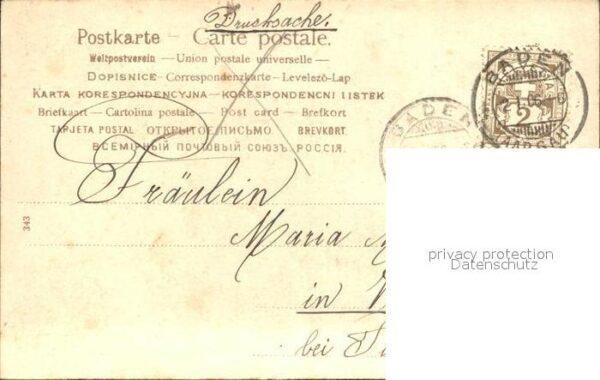 Drucksache.
Postkarte – Carte postale.
Weltpostverein – Union postale universelle –
DOPISNICE – Correspondenzkarte – Levelező-Lap
KARTA KORESPONDENCYJNA – KORESPONDENCNI LISTEK
Briefkaart – Cartolina postale – Post card – Brefkort
TAPJETA POSTAL ОТКРЫТОЕ ПИСЬМО BREVKORT.
ВСЕМІРНЫЙ ПОЧТОВЫЙ СОЮЗЪ РОССІЯ.
BADEN
2
BADEN
(AARGAU)
Fräulein
Maria
in
bei
343
privacy protection
Datenschutz